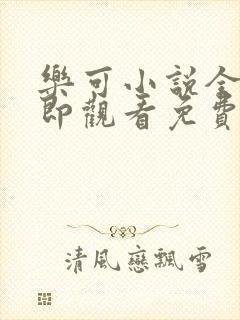 樂可小說全
即觀看免費
清風戀飄雪